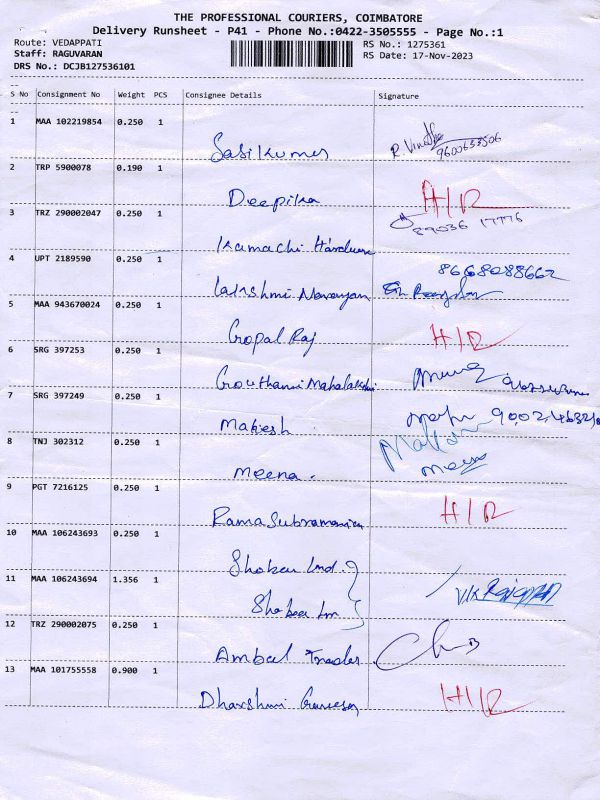 THE PROFESSIONAL COURIERS, COIMBATORE
Delivery Runsheet - P41 - Phone No.:0422-3505555 - Page No.:1
Route: VEDAPPATI RS No.: 1275361
Staff: RAGUVARAN RS Date: 17-Nov-2023
DRS No.: DCJB127536101
S No Consignment No Weight PCS Consignee Details Signature
1 MAA 102219854 0.250 1 Sasikumar R Vinotha
9600653506
2 TRP 5900078 0.190 1 Deepika H/R
3 TRZ 290002047 0.250 1 Kamachi Hardware 89036 17776
4 UPT 2189590 0.250 1 Lakshmi Narayan 8668088662
5 MAA 943670024 0.250 1 Gopal Raj H/R
6 SRG 397253 0.250 1 Gouthami Mahalakshmi
7 SRG 397249 0.250 1 Makesh
8 TNJ 302312 0.250 1 Meena. Meena
9 PGT 7216125 0.250 1 Rama Subramanian H/R
10 MAA 106243693 0.250 1
11 MAA 106243694 1.356 1
12 TRZ 290002075 0.250 1 Ambal Trader
13 MAA 101755558 0.900 1 H/R